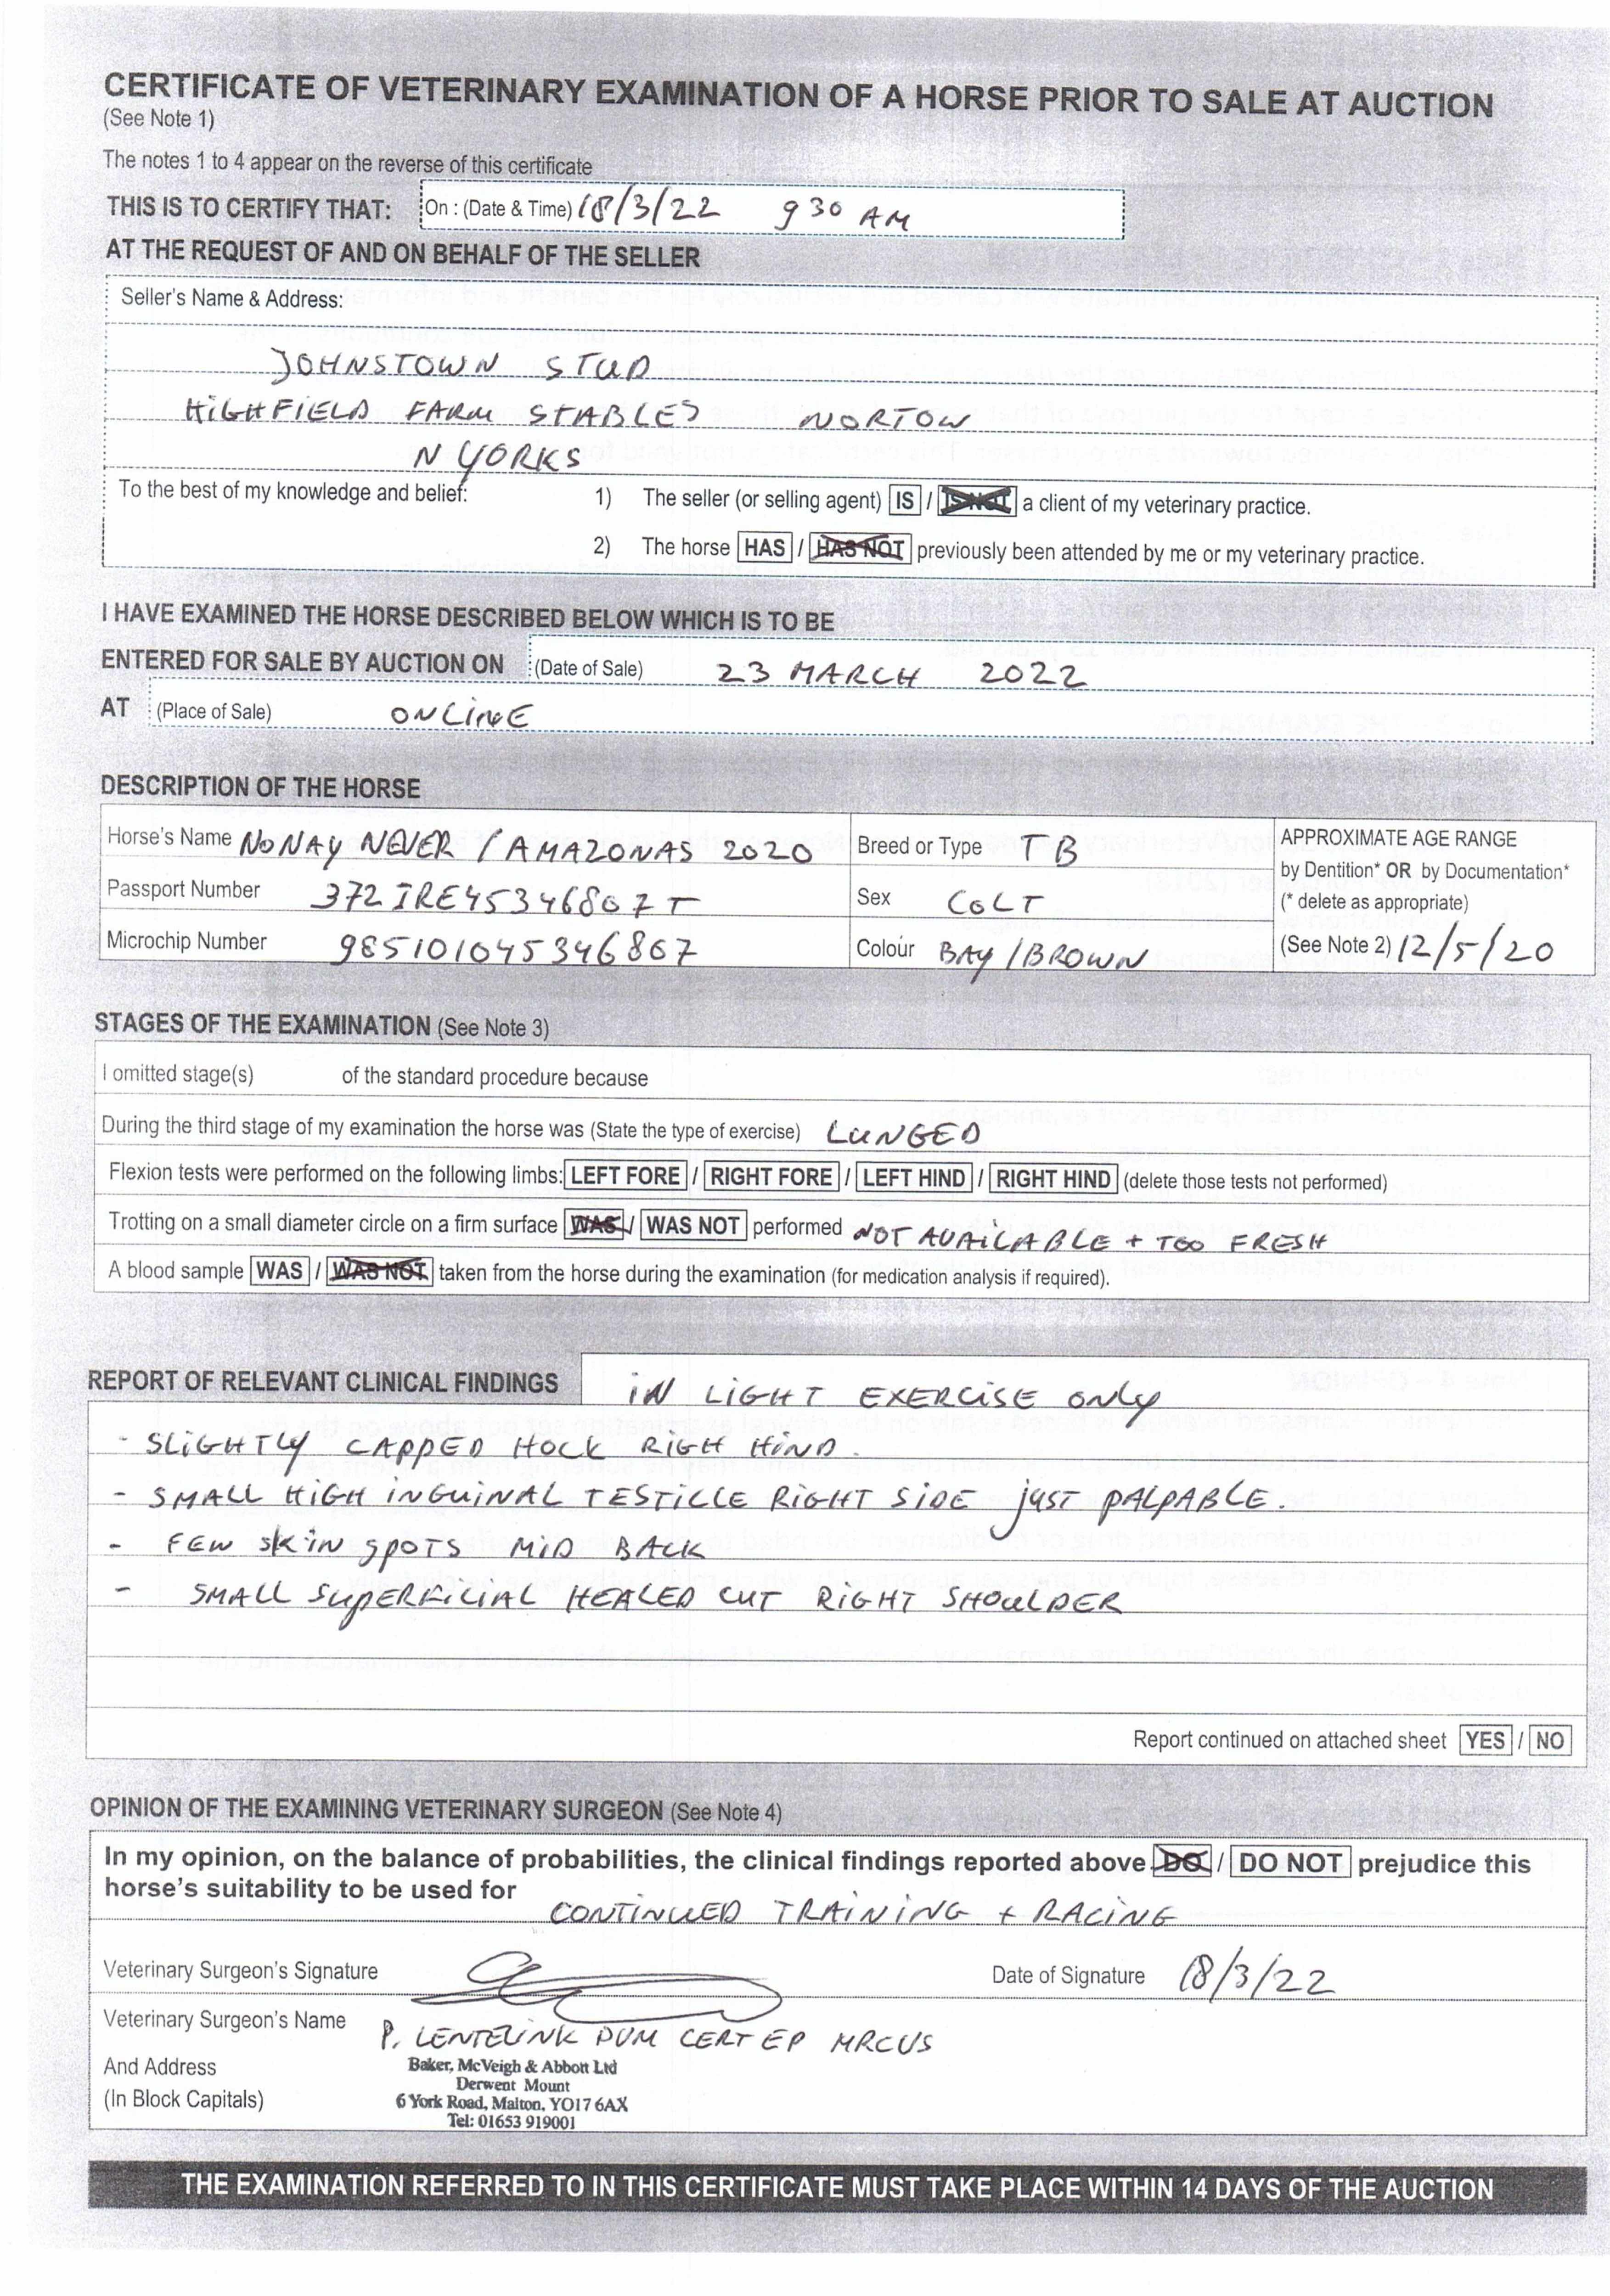 CERTIFICATE OF VETERINARY EXAMINATION OF A HORSE PRIOR TO SALE AT AUCTION
(See Note 1)
The notes 1 to 4 appear on the reverse of this certificate
THIS IS TO CERTIFY THAT: On : (Date & Time) 18/3/22 9 30 AM
AT THE REQUEST OF AND ON BEHALF OF THE SELLER
Seller's Name & Address:
JOHNSTOWN STUD
HIGHFIELD FARM STABLES NORTON
N YORKS
To the best of my knowledge and belief: 1) The seller (or selling agent) IS / IS NOT a client of my veterinary practice.
2) The horse HAS / HAS NOT previously been attended by me or my veterinary practice.
I HAVE EXAMINED THE HORSE DESCRIBED BELOW WHICH IS TO BE
ENTERED FOR SALE BY AUCTION ON (Date of Sale) 23 MARCH 2022
AT (Place of Sale) ONLINE
DESCRIPTION OF THE HORSE
Horse's Name NONAY NEVER / AMAZONAS 2020 Breed or Type TB APPROXIMATE AGE RANGE
by Dentition* OR by Documentation*
Passport Number 372IRE45346807T Sex COLT (* delete as appropriate)
Microchip Number 985101045346867 Colour BAY/BROWN (See Note 2) 12/5/20
STAGES OF THE EXAMINATION (See Note 3)
I omitted stage(s) of the standard procedure because
During the third stage of my examination the horse was (State the type of exercise) LUNGED
Flexion tests were performed on the following limbs: LEFT FORE / RIGHT FORE / LEFT HIND / RIGHT HIND (delete those tests not performed)
Trotting on a small diameter circle on a firm surface WAS / WAS NOT performed NOT AVAILABLE + TOO FRESH
A blood sample WAS / WAS NOT taken from the horse during the examination (for medication analysis if required).
REPORT OF RELEVANT CLINICAL FINDINGS IN LIGHT EXERCISE ONLY
- SLIGHTLY CAPPED HOCK RIGH HIND.
- SMALL HIGH INGUINAL TESTILLE RIGHT SIDE JUST PALPABLE.
- FEW SKIN SPOTS MID BACK
- SMALL SUPERFILIAL HEALED CUT RIGHT SHOULDER
Report continued on attached sheet YES / NO
OPINION OF THE EXAMINING VETERINARY SURGEON (See Note 4)
In my opinion, on the balance of probabilities, the clinical findings reported above DO / DO NOT prejudice this
horse's suitability to be used for
CONTINUED TRAINING + RACING
Veterinary Surgeon's Signature Date of Signature 18/3/22
Veterinary Surgeon's Name P. LENTELINK DVM CERT EP MRCVS
And Address Baker, McVeigh & Abbott Ltd
Derwent Mount
(In Block Capitals) 6 York Road, Malton, YO17 6AX
Tel: 01653 919001
THE EXAMINATION REFERRED TO IN THIS CERTIFICATE MUST TAKE PLACE WITHIN 14 DAYS OF THE AUCTION